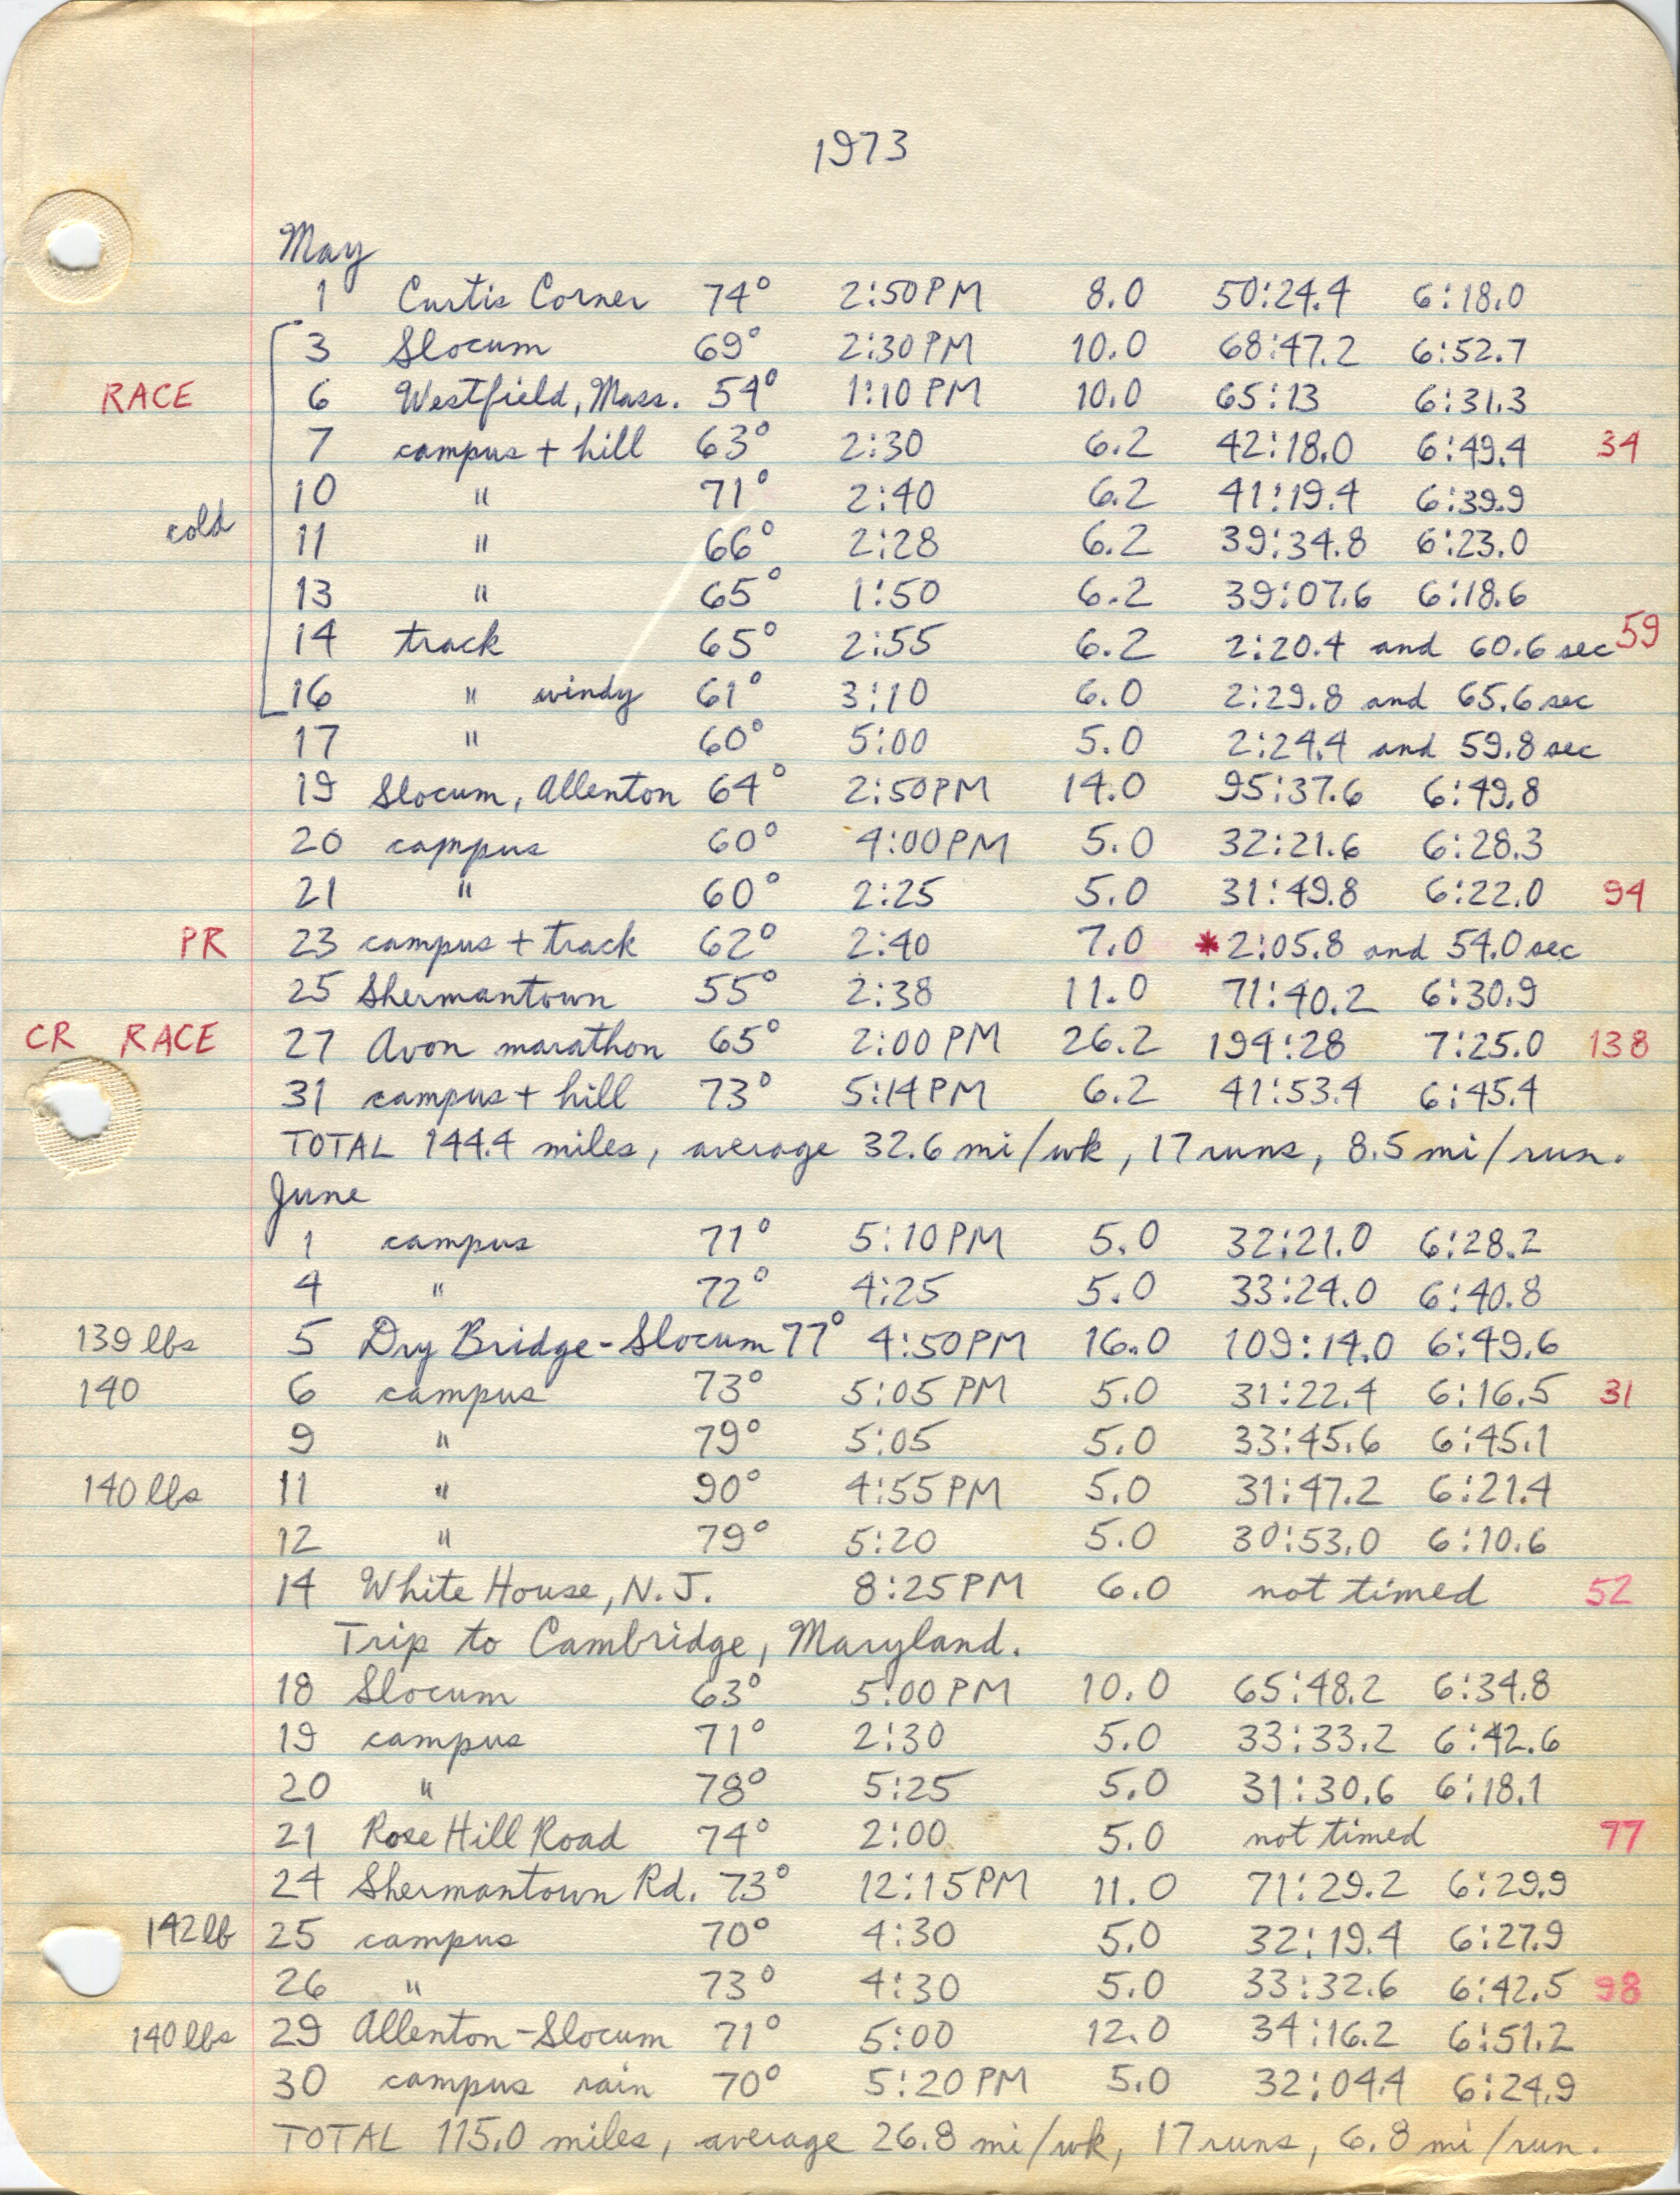 1973
May
1 Curtis Corner 74° 2:50PM 8.0 50:24.4 6:18.0
3 Slocum 69° 2:30PM 10.0 68:47.2 6:52.7
RACE 6 Westfield, Mass. 54° 1:10 PM 10.0 65:13 6:31.3
7 campus + hill 63° 2:30 6.2 42:18.0 6:49.4 34
10 " 71° 2:40 6.2 41:19.4 6:39.9
cold 11 " 66° 2:28 6.2 39:34.8 6:23.0
13 " 65° 1:50 6.2 39:07.6 6:18.6
14 track 65° 2:55 6.2 2:20.4 and 60.6 sec 59
16 " windy 61° 3:10 6.0 2:29.8 and 65.6 sec
17 " 60° 5:00 5.0 2:24.4 and 59.8 sec
19 Slocum, Allenton 64° 2:50PM 14.0 95:37.6 6:49.8
20 campus 60° 4:00PM 5.0 32:21.6 6:28.3
21 " 60° 2:25 5.0 31:49.8 6:22.0 94
PR 23 campus + track 62° 2:40 7.0 *2:05.8 and 54.0 sec
25 Shermantown 55° 2:38 11.0 71:40.2 6:30.9
CR RACE 27 Avon marathon 65° 2:00 PM 26.2 194:28 7:25.0 138
31 campus + hill 73° 5:14PM 6.2 41:53.4 6:45.4
TOTAL 144.4 miles, average 32.6 mi/wk, 17 runs, 8.5 mi/run.
June
1 campus 71° 5:10PM 5.0 32:21.0 6:28.2
4 " 72° 4:25 5.0 33:24.0 6:40.8
139 lbs 5 Dry Bridge-Slocum 77° 4:50PM 16.0 109:14.0 6:49.6
140 6 campus 73° 5:05 PM 5.0 31:22.4 6:16.5 31
9 " 79° 5:05 5.0 33:45.6 6:45.1
140 lbs 11 " 90° 4:55PM 5.0 31:47.2 6:21.4
12 " 79° 5:20 5.0 30:53.0 6:10.6
14 White House, N.J. 8:25PM 6.0 not timed 52
Trip to Cambridge, Maryland.
18 Slocum 63° 5:00 PM 10.0 65:48.2 6:34.8
19 campus 71° 2:30 5.0 33:33.2 6:42.6
20 " 78° 5:25 5.0 31:30.6 6:18.1
21 Rose Hill Road 74° 2:00 5.0 not timed 77
24 Shermantown Rd. 73° 12:15PM 11.0 71:29.2 6:29.9
142 lb 25 campus 70° 4:30 5.0 32:19.4 6:27.9
26 " 73° 4:30 5.0 33:32.6 6:42.5 98
140 lbs 29 Allenton-Slocum 71° 5:00 12.0 34:16.2 6:51.2
30 campus rain 70° 5:20PM 5.0 32:04.4 6:24.9
TOTAL 115.0 miles, average 26.8 mi/wk, 17 runs, 6.8 mi/run.